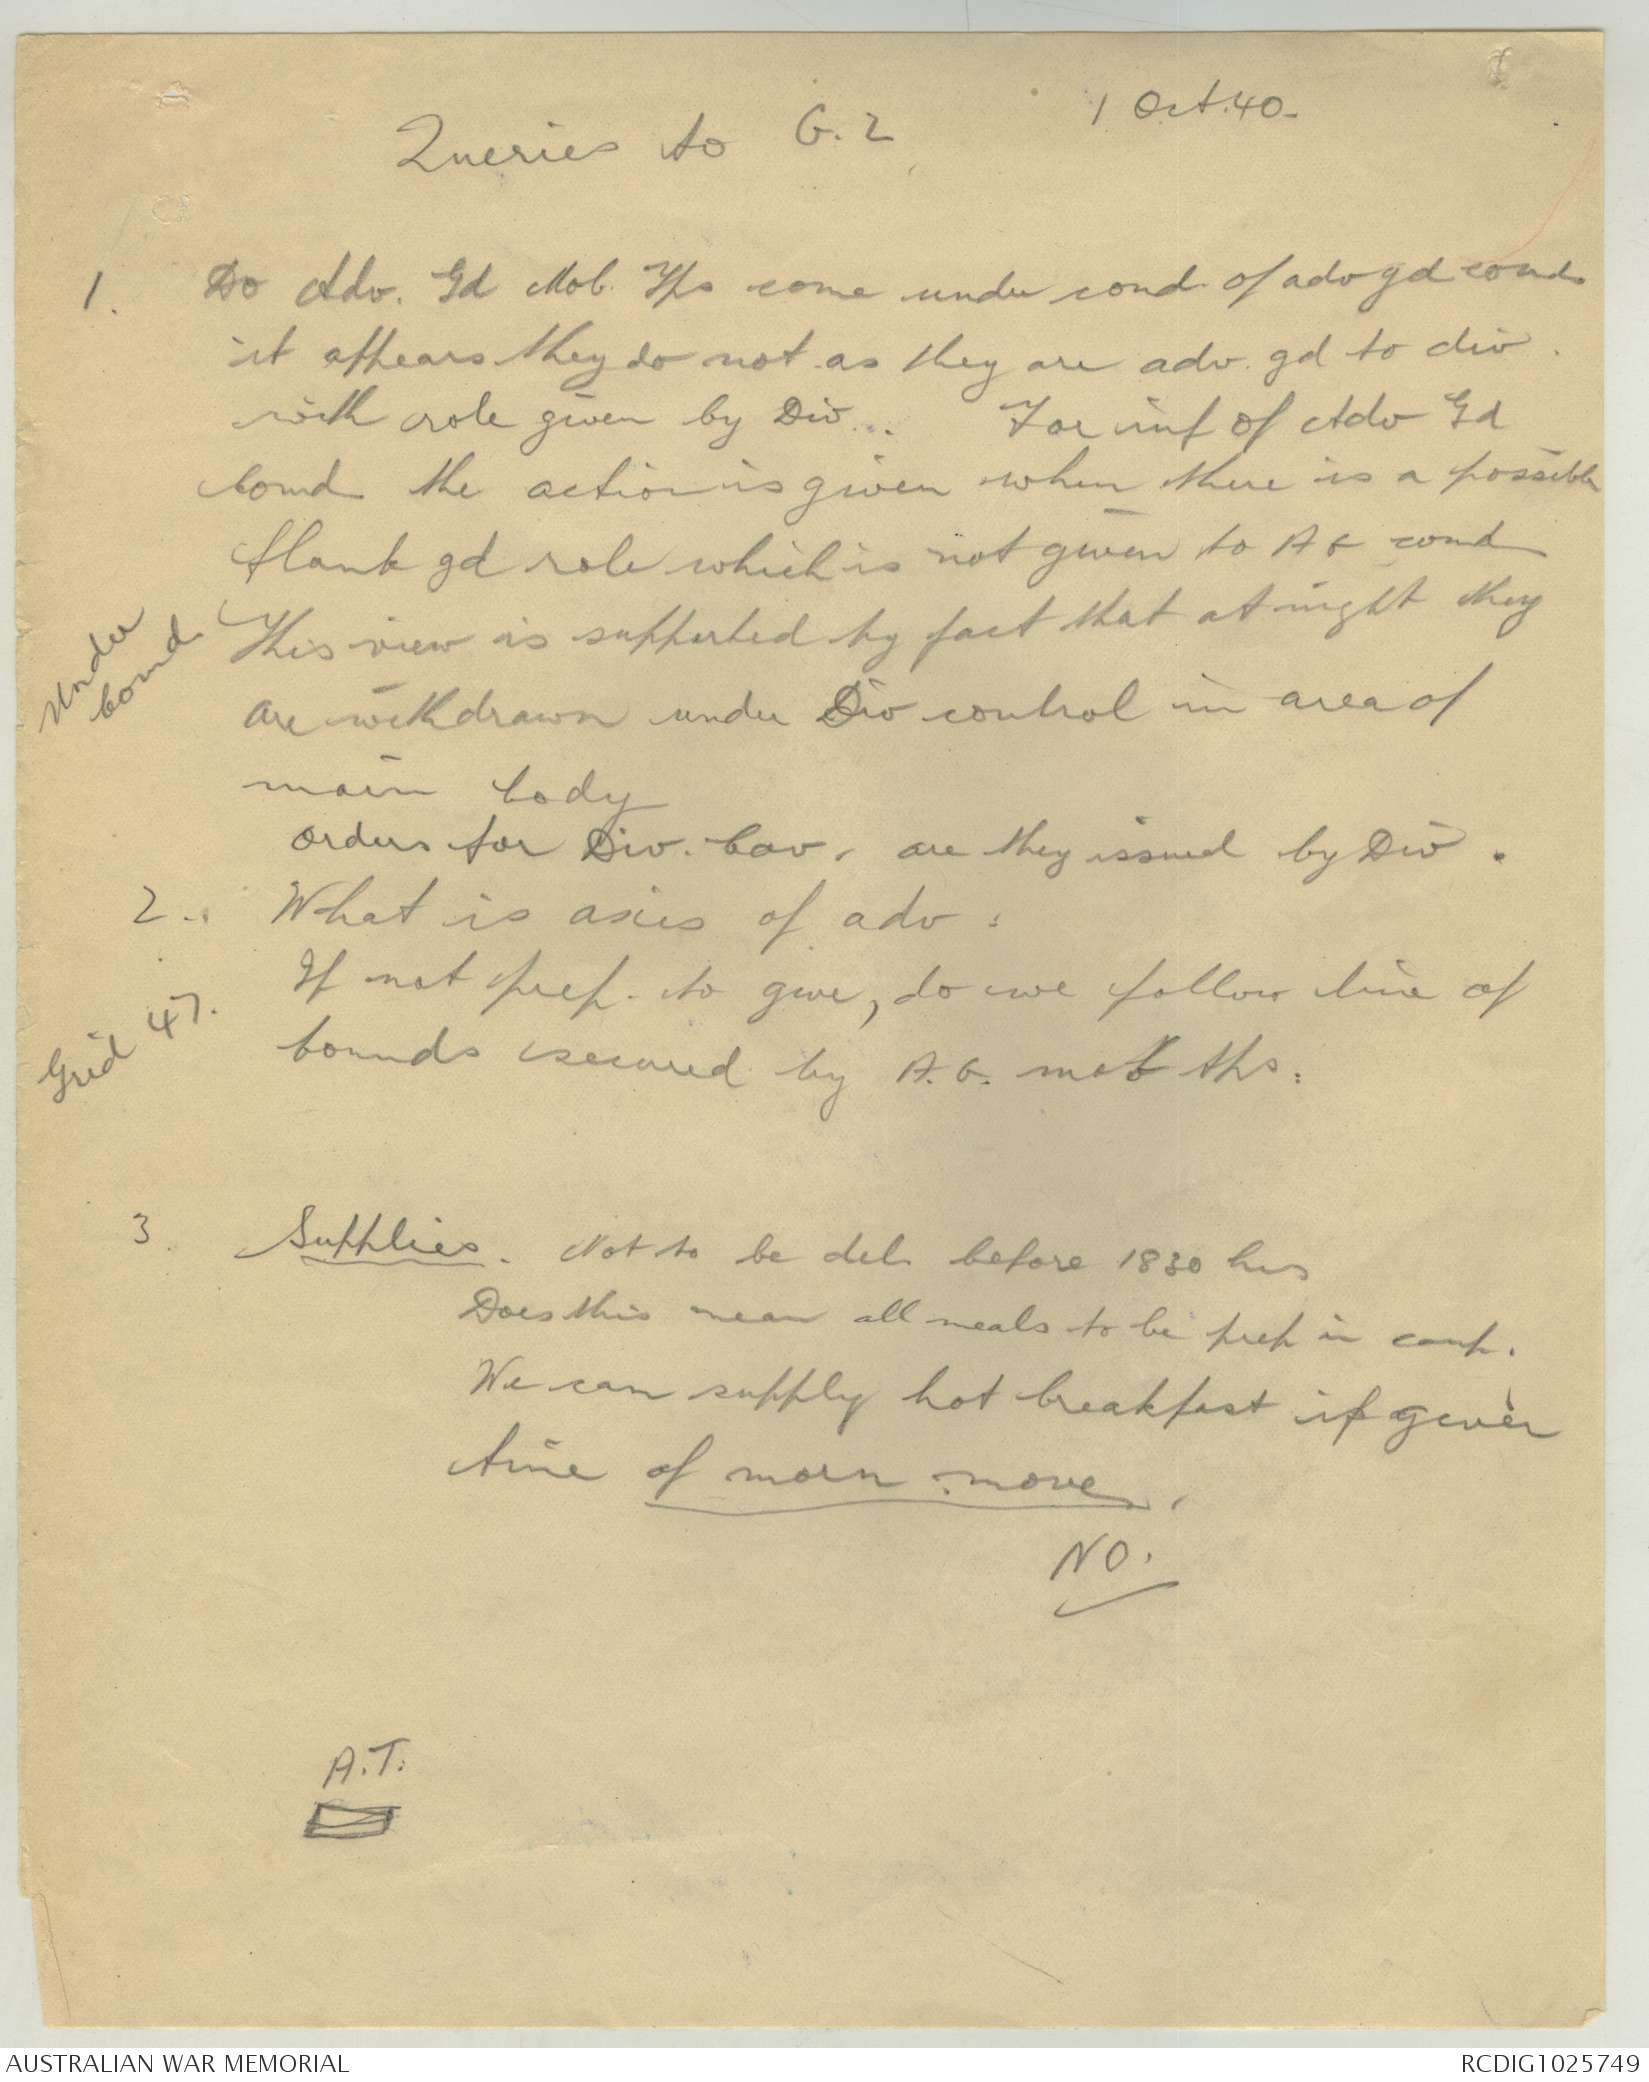 1 Oct. 40.
Queries to G. 2
1. Do Adv. Gd Mob. Tps come under comd. of adv gd comd
it appears they do not as they are adv. gd to div.
with role given by Div... For inf of Adv Gd
Comd the action is given when there is a possible
flank gd role which is not given to A G comd
This view is supported by fact that at night they
are withdrawn under Div control in area of
main body
Under
Comd
Orders for Div. Cav. are they issued by Div.
2. What is axis of adv:
If not prep. to give, do we follow line of
bounds secured by A.G. mob tps:
Grid 47.
3. Supplies. Not to be del. before 1830 hrs
Does this mean all meals to be prep in camp.
We can supply hot breakfast if given
time of morn move.
NO.
A.T.
AUSTRALIAN WAR MEMORIAL
RCDIG1025749